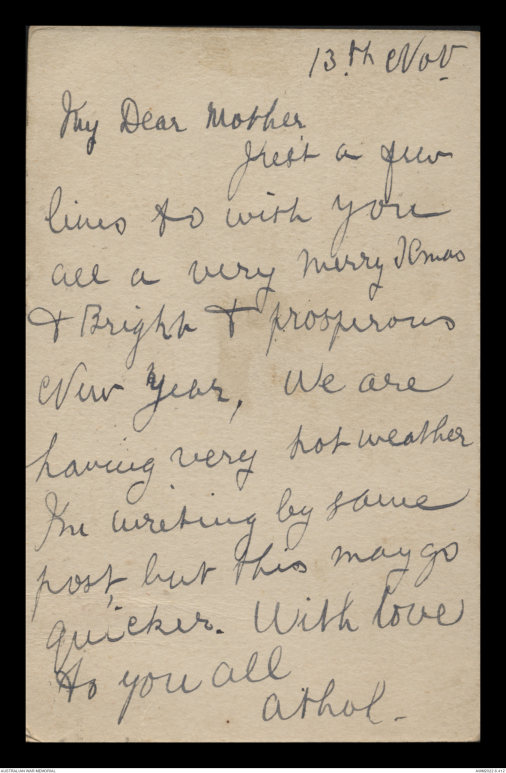 13.th Nov
My Dear Mother
Just a few
lines to wish you
all a very Merry Xmas
& Bright & prosperous
New Year, We are
having very hot weather
I'm writing by same
post, but this may go
quicker. With love
to you all
Athol -
AUSTRALIAN WAR MEMORIAL